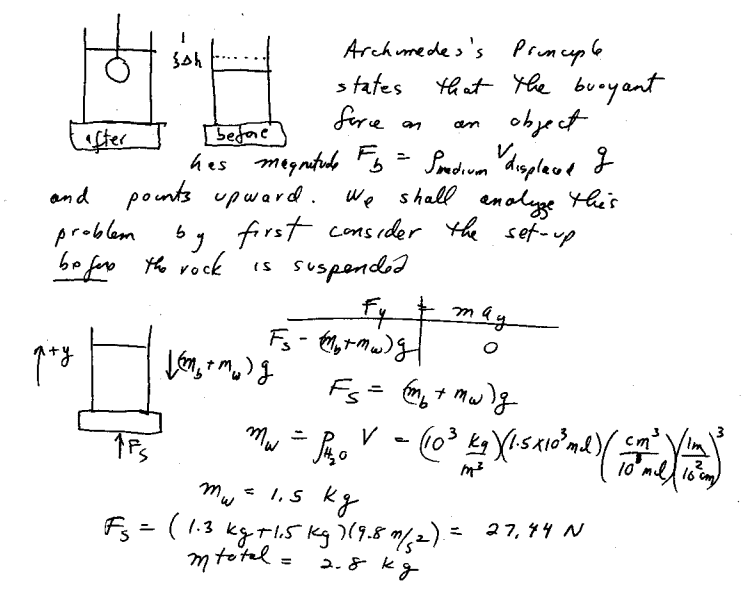 Archimedes's Principle
states that the buoyant
force on an object
has magnitude F_b = ρ_medium V_displaced g
and points upward. We shall analyze this
problem by first consider the set-up
before the rock is suspended
}Δh
after
before
F_y = m a_y
F_s - (m_b + m_w) g | 0
↑+y
↓(m_b + m_w) g
F_s = (m_b + m_w) g
↑F_s
m_w = ρ_H₂O V = (10³ kg/m³)(1.5×10³ ml)(cm³/ ml)(1m/10² cm)³
m_w = 1.5 kg
F_s = (1.3 kg + 1.5 kg)(9.8 m/s²) = 27.44 N
m total = 2.8 kg